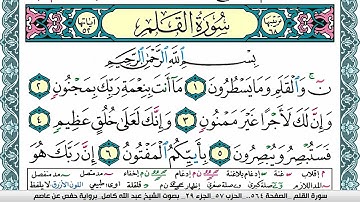 ترتيبها ٦٨ سُورَةُ القَلَمِ آياتها ٥٢
بِسْمِ اللَّهِ الرَّحْمَٰنِ الرَّحِيمِ
نٓ وَالْقَلَمِ وَمَا يَسْطُرُونَ ١ مَا أَنتَ بِنِعْمَةِ رَبِّكَ بِمَجْنُونٍ ٢
وَإِنَّ لَكَ لَأَجْرًا غَيْرَ مَمْنُونٍ ٣ وَإِنَّكَ لَعَلَىٰ خُلُقٍ عَظِيمٍ ٤
فَسَتُبْصِرُ وَيُبْصِرُونَ ٥ بِأَييِّكُمُ الْمَفْتُونُ ٦ إِنَّ رَبَّكَ هُوَ
سورة القلم _ الصفحة ٥٦٤ .. الحزب ٥٧ الجزء ٢٩ . بصوت الشيخ عبد الله كامل . برواية حفص عن عاصم